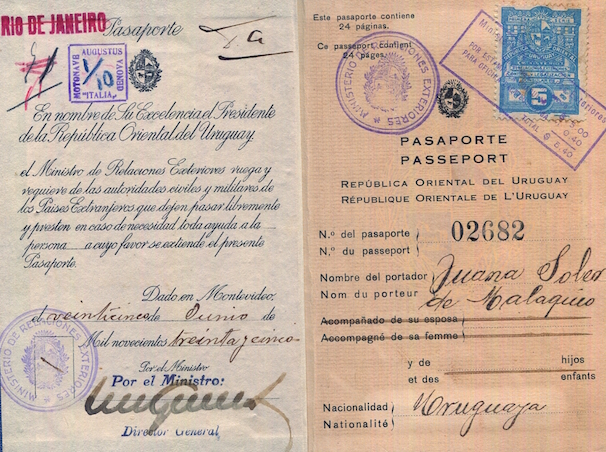 RIO DE JANEIRO
Pasaporte
MOTONAVE
AUGUSTUS
GENOVA
"ITALIA"
1/10
En nombre de Su Excelencia el Presidente
de la República Oriental del Uruguay
el Ministro de Relaciones Exteriores ruega y
requiere de las autoridades civiles y militares de
los Países Extranjeros que dejen pasar libremente
y presten en caso de necesidad toda ayuda a la
persona a cuyo favor se extiende el presente
Pasaporte.
Dado en Montevideo:
el veinticinco de Junio de
Mil novecientos treinta y cinco
Por el Ministro
Por el Ministro:
Director General
MINISTERIO DE RELACIONES EXTERIORES
Este pasaporte contiene
24 páginas.
Ce passeport contient
24 pages.
MINISTERIO DE RELACIONES EXTERIORES
PASAPORTE
PASSEPORT
República Oriental del Uruguay
République Orientale de L'Uruguay
N.º del pasaporte
N.º du passeport
02682
Nombre del portador
Nom du porteur
Juana Soler
de Malaquio
Acompañado de su esposa
Accompagné de sa femme
y de
et des
hijos
enfants
Nacionalidad
Nationalité
Uruguaya